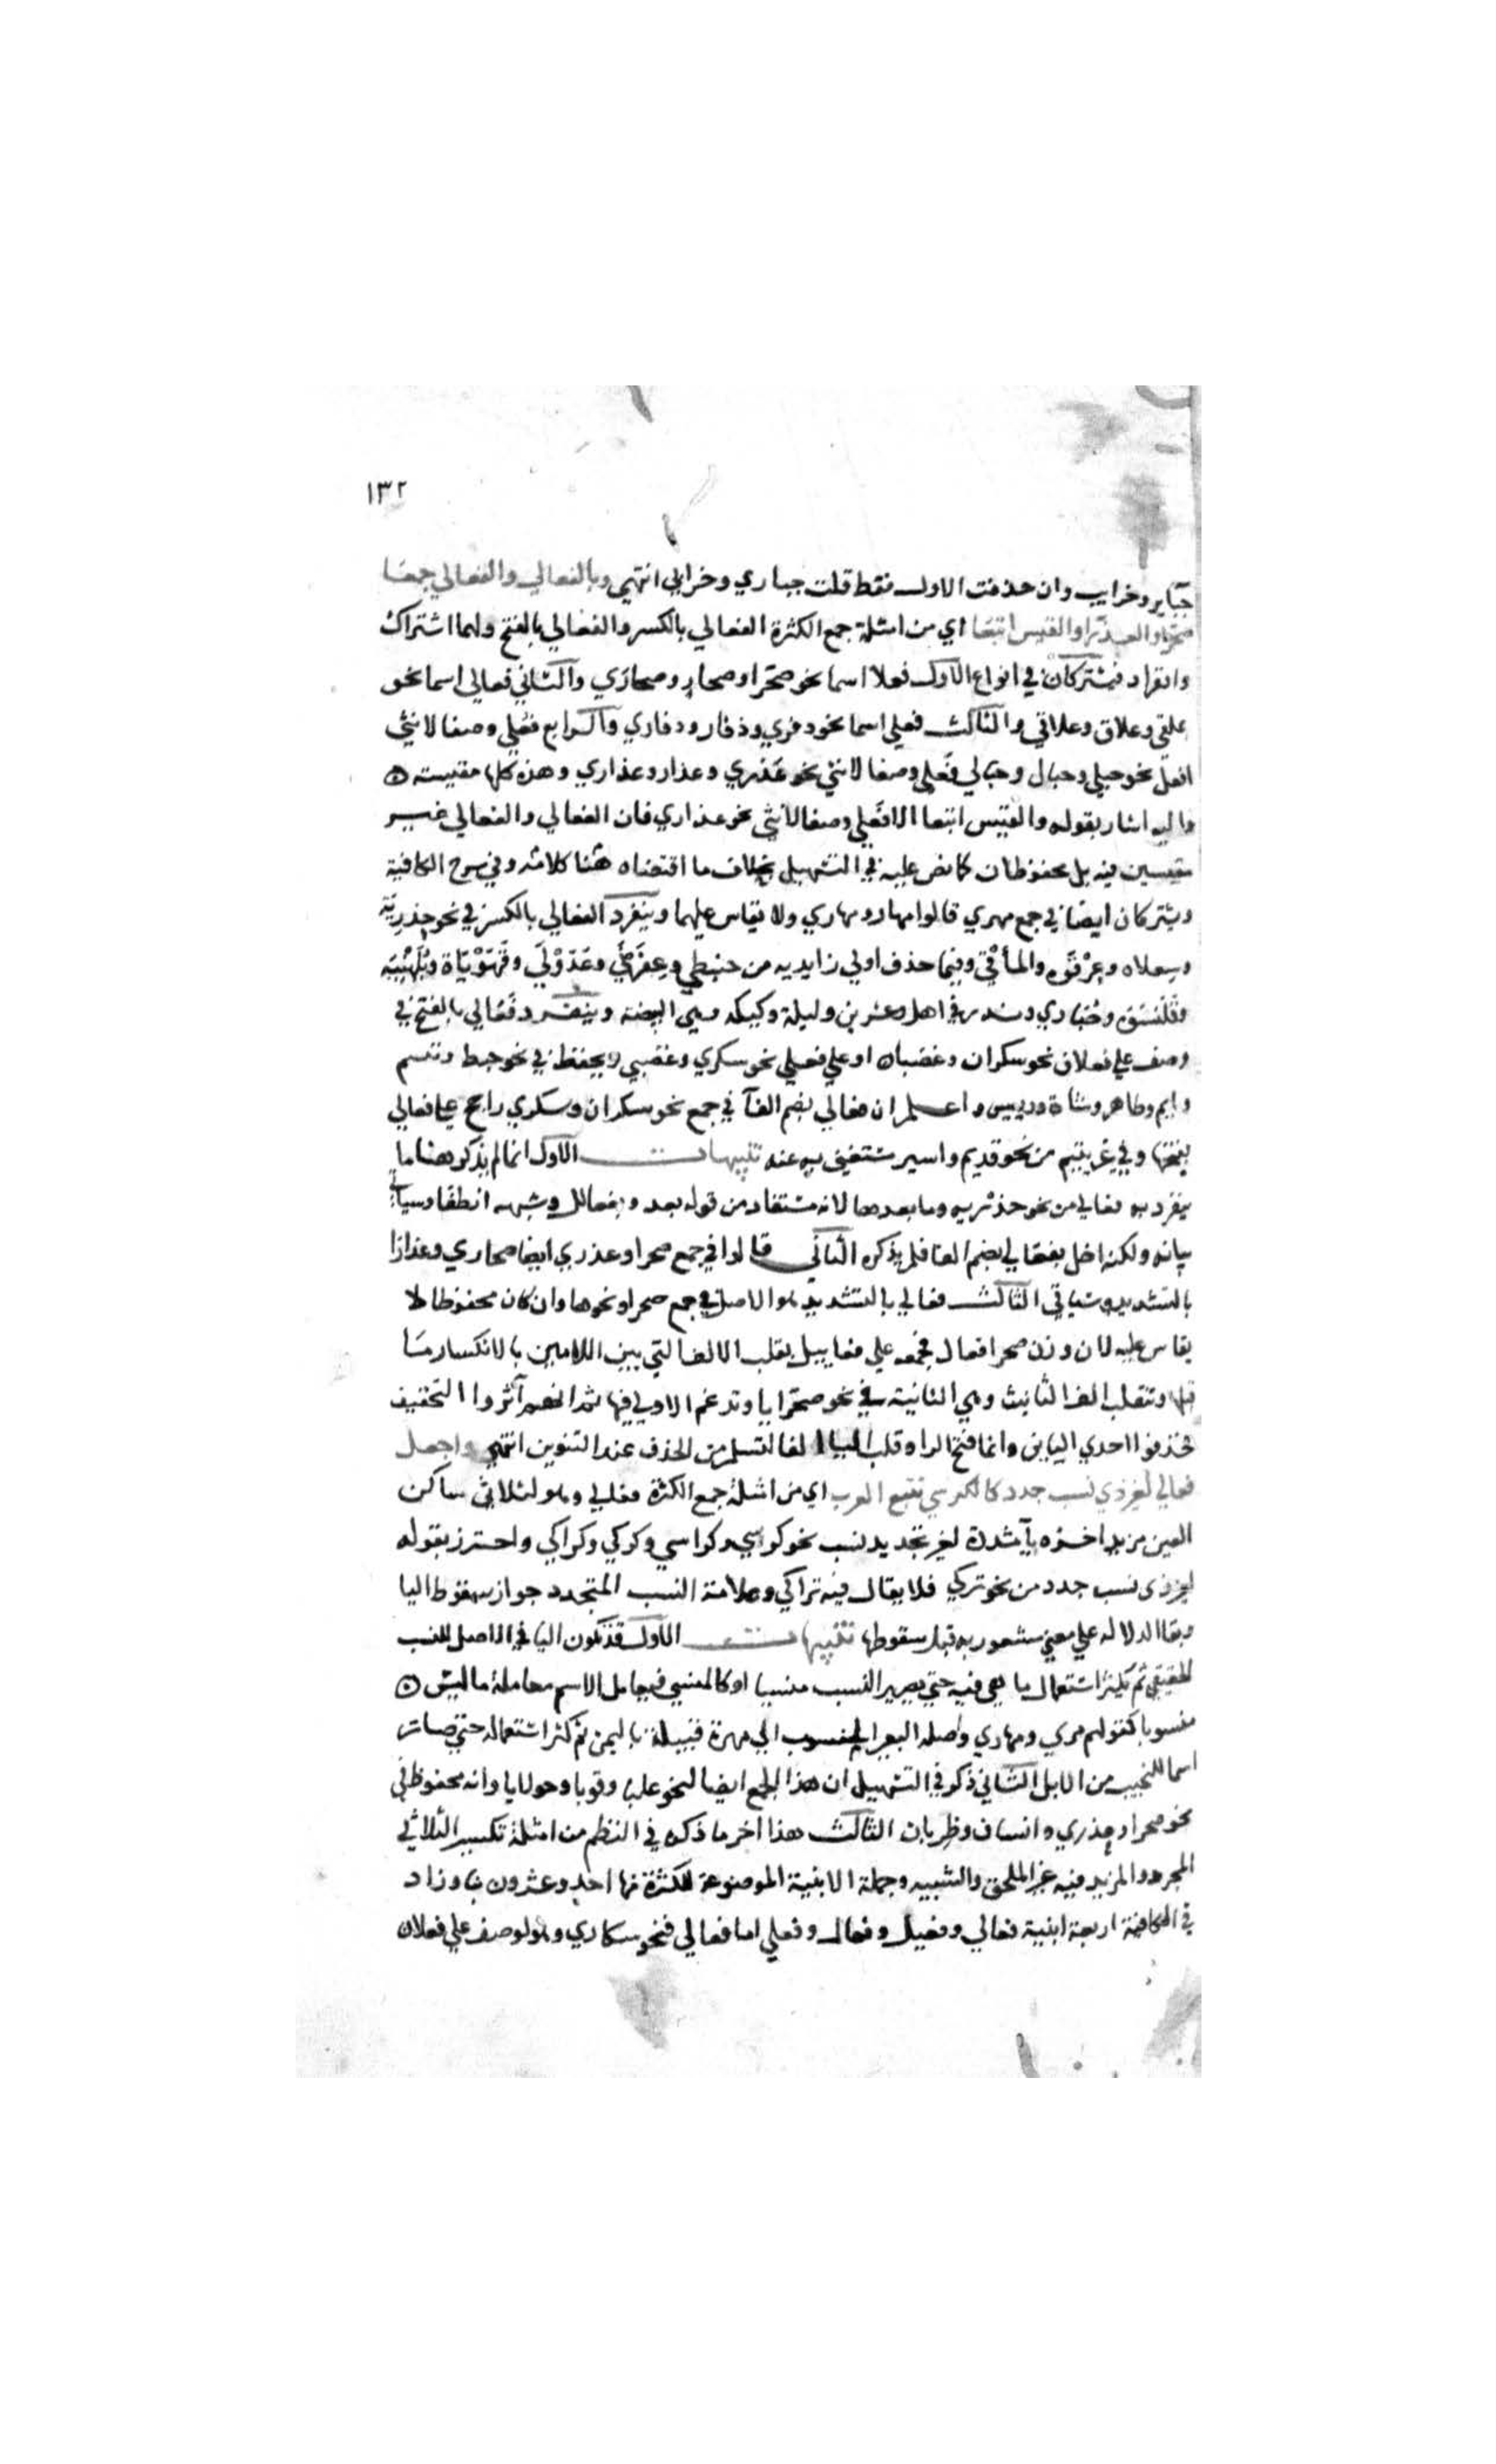 ١٣٢
حباير وخرايب وان حذفت الاول فقط قلت حباري وخزابي انتهي وبالفعالي والفعالي جمعا
صحراو العذرا والقيس اتبعا اي من امثلة جمع الكثرة الفعالي بالكسر والفعالي بالفتح ولهما اشتراك
وانفراد فيشتركان في انواع الاول فعلا اسما نحو صحرا وصحار وصحاري والثاني فعالي اسما نحو
علقي وعلاق وعلاقي والثالث فعلي اسما نحو دفري وذفار ودفاري والرابع فعلي وصفا لانثي
افعل نحو حبلي وحبال وحبالي فعلي وصفا لانثي نحو عذري وعذار وعذاري وهذه كلها مقيسته
واليه اشار بقوله والقيس اتبعا الا فعلي وصفا لانثي نحو عذاري فان الفعالي والفعالي غير
مقيسين فيه بل محفوظان كما نص عليه في التسهيل بخلاف ما اقتضاه هنا كلامه وفي شرح الكافية
ويشتركان ايضا في جمع مهري قالوا مهار ومهاري ولا يقاس عليهما وينفرد الفعالي بالكسر في نحو حذرية
وسعلاه وعرقوه والمأقي وفيما حذف اولي زايديه من حنبطي وعفرني وعدولي وقهوباة وبلهنية
وقلنسوه وحباري وندر في اهل وعشرين وليلة وكيكه وهي البيضه وينفرد فعالي بالفتح في
وصف علي فعلان نحو سكران وغضبان او علي فعلي نحو سكري وغضبي ويحفظ في نحو حبط ويتيم
وايم وطاهر وشاة ورييس واعلم ان فعالي بضم الفآ في جمع نحو سكران وسكري راجح علي فعالي
بفتحها وفي غير يتيم من نحو قديم واسير مستغني به عنه تنبيهات الاول انما لم يذكر هنا ما
ينفرد به فعالي من نحو حذريه وما بعدها لانه مستفاد من قوله بعد وبفعالل وشبهه انطقا وسياتي
بيانه ولكنه اخل بفعالي بضم الفا فلم يذكره الثاني قالوا في جمع صحرا وعذري ايضا صحاري وعذارا
بالتشديد وسياتي الثالث فعالي بالتشديد هو الاصل في جمع صحرا ونحوها وان كان محفوظا لا
يقاس عليه لان وزن صحرا فعلال فجمعه علي فعاليل بقلب الالف التي بين اللامين يا لانكسار ما
قبلها وتقلب الف التانيث وهي الثانية في نحو صحرا يا وتدغم الاولي فيها ثم انهم آثروا التخفيف
فحذفوا احدي اليائين وانما فتح الرا وقلب اليا الفا لتسلم من الحذف عند التنوين انتهي واجعل
فعالي لغير ذي نسب جدد كالكرسي تتبع العرب اي من امثلة جمع الكثرة فعالي وهو لثلاثي ساكن
العين مزيد اخره يآ مشددة لغير تجديد نسب نحو كرسي وكراسي وكركي وكراكي واحترز بقوله
لغير ذي نسب جدد من نحو تركي فلا يقال فيه تراكي وعلامة النسب المتجدد جواز سقوط اليا
وبقا الدلاله علي معني مشعور به قبل سقوطها تنبيهات الاول قد تكون اليا في الاصل للنسب
الحقيقي ثم يكثر استعمال ما هي فيه حتي يصير النسب منسيا او كالمنسي فيعامل الاسم معاملة ما ليس
منسوبا كقولهم مهري ومهاري واصله البعير المنسوب الي مهرة قبيلة باليمن ثم كثر استعماله حتي صار
اسما للنجيب من الابل الثاني ذكر في التسهيل ان هذا الجمع ايضا لنحو علبا وقوبا وحولايا وانه محفوظ في
نحو صحرا وعذري وانسان وظربان الثالث هذا اخر ما ذكره في النظم من امثلة تكسير الثلاثي
المجرد والمزيد فيه غير الملحق والشبيه وجملة الابنية الموضوعة للكثرة منها احد وعشرون بنا وزاد
في الكافية اربعة ابنية فعالي وفعيل وفعال وفعلي اما فعالي فنحو سكاري وهو لوصف علي فعلان